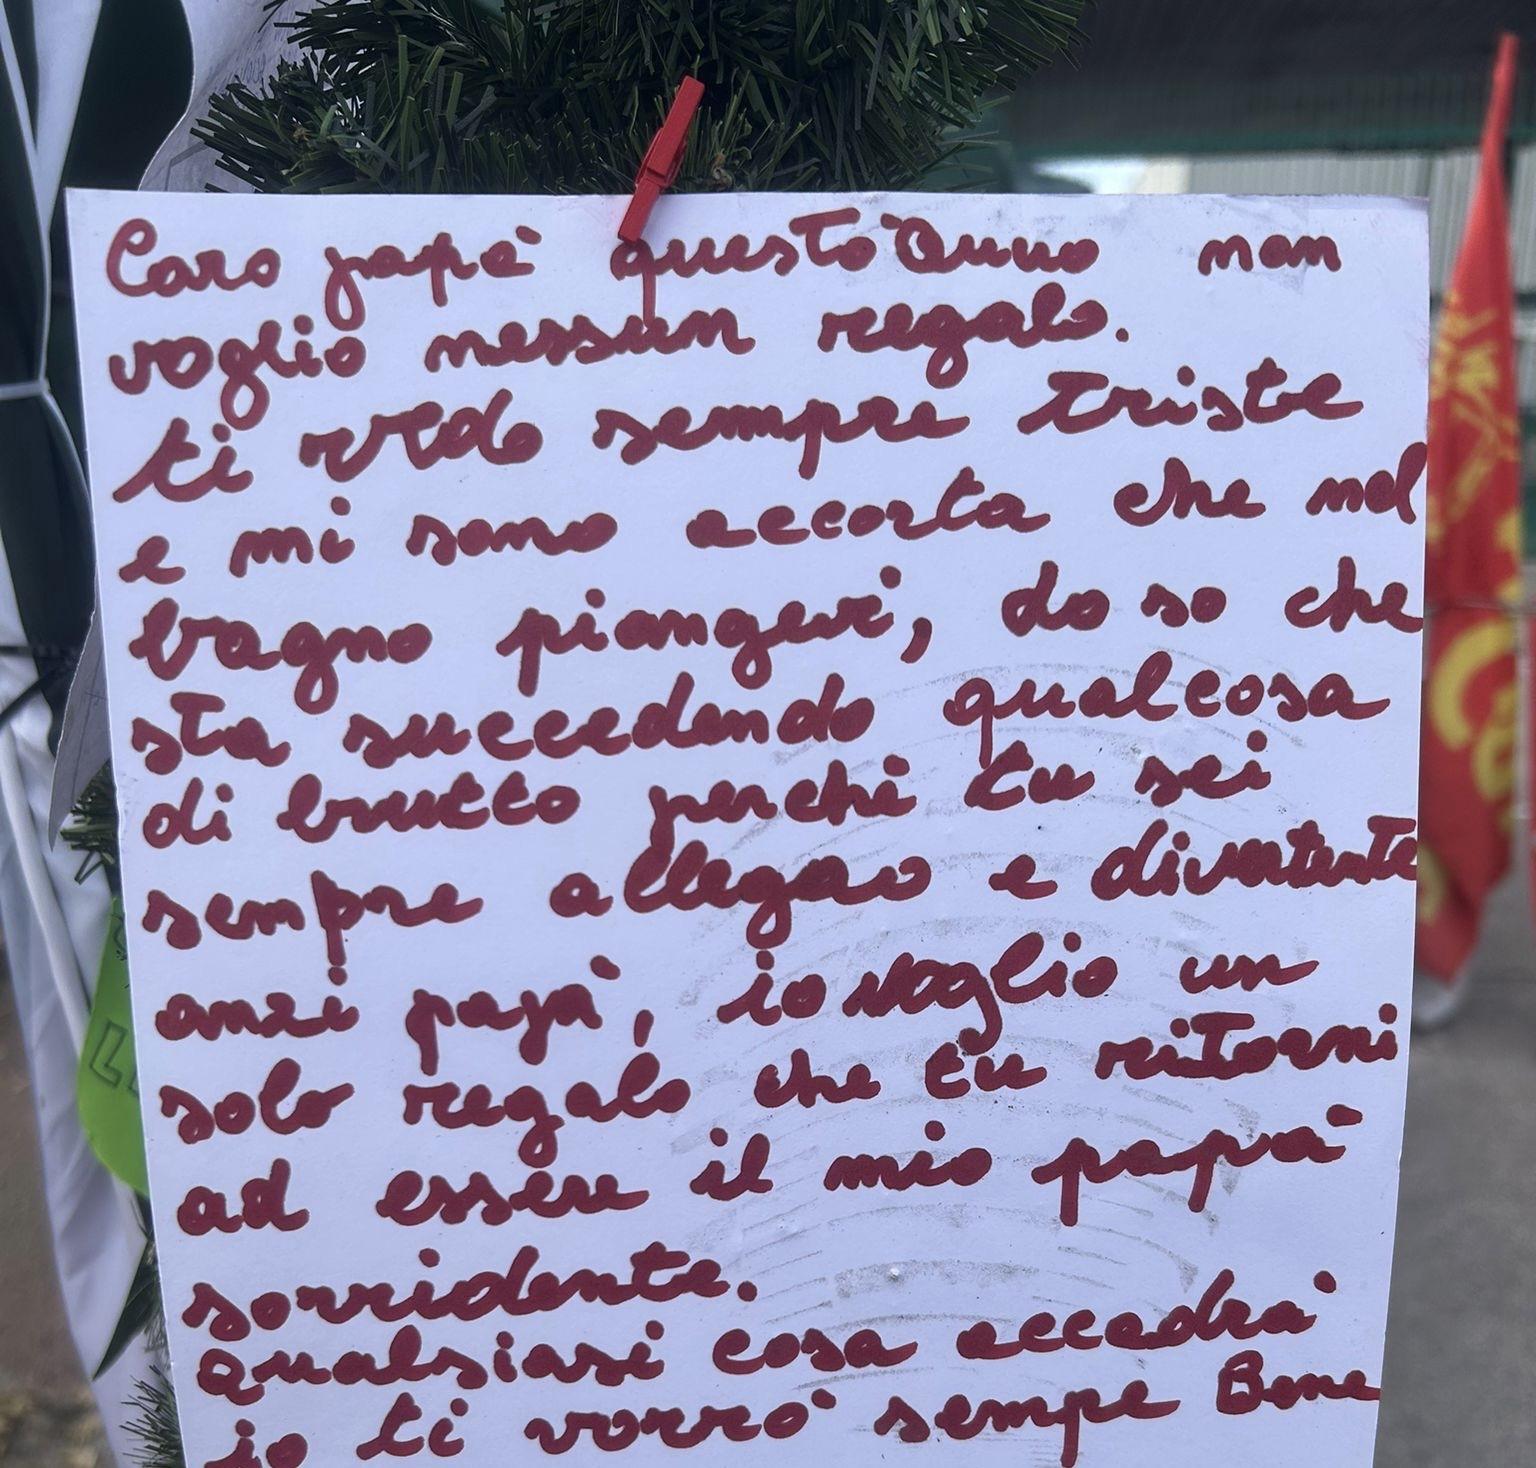 Caro papà questo anno non
voglio nessun regalo.
ti vedo sempre triste
e mi sono accorta che nel
bagno piangevi, lo so che
sta succedendo qualcosa
di brutto perchè tu sei
sempre allegro e divertente
anzi papà, io voglio un
solo regalo che tu ritorni
ad essere il mio papà
sorridente.
qualsiasi cosa accadrà
io ti vorrò sempe Bene